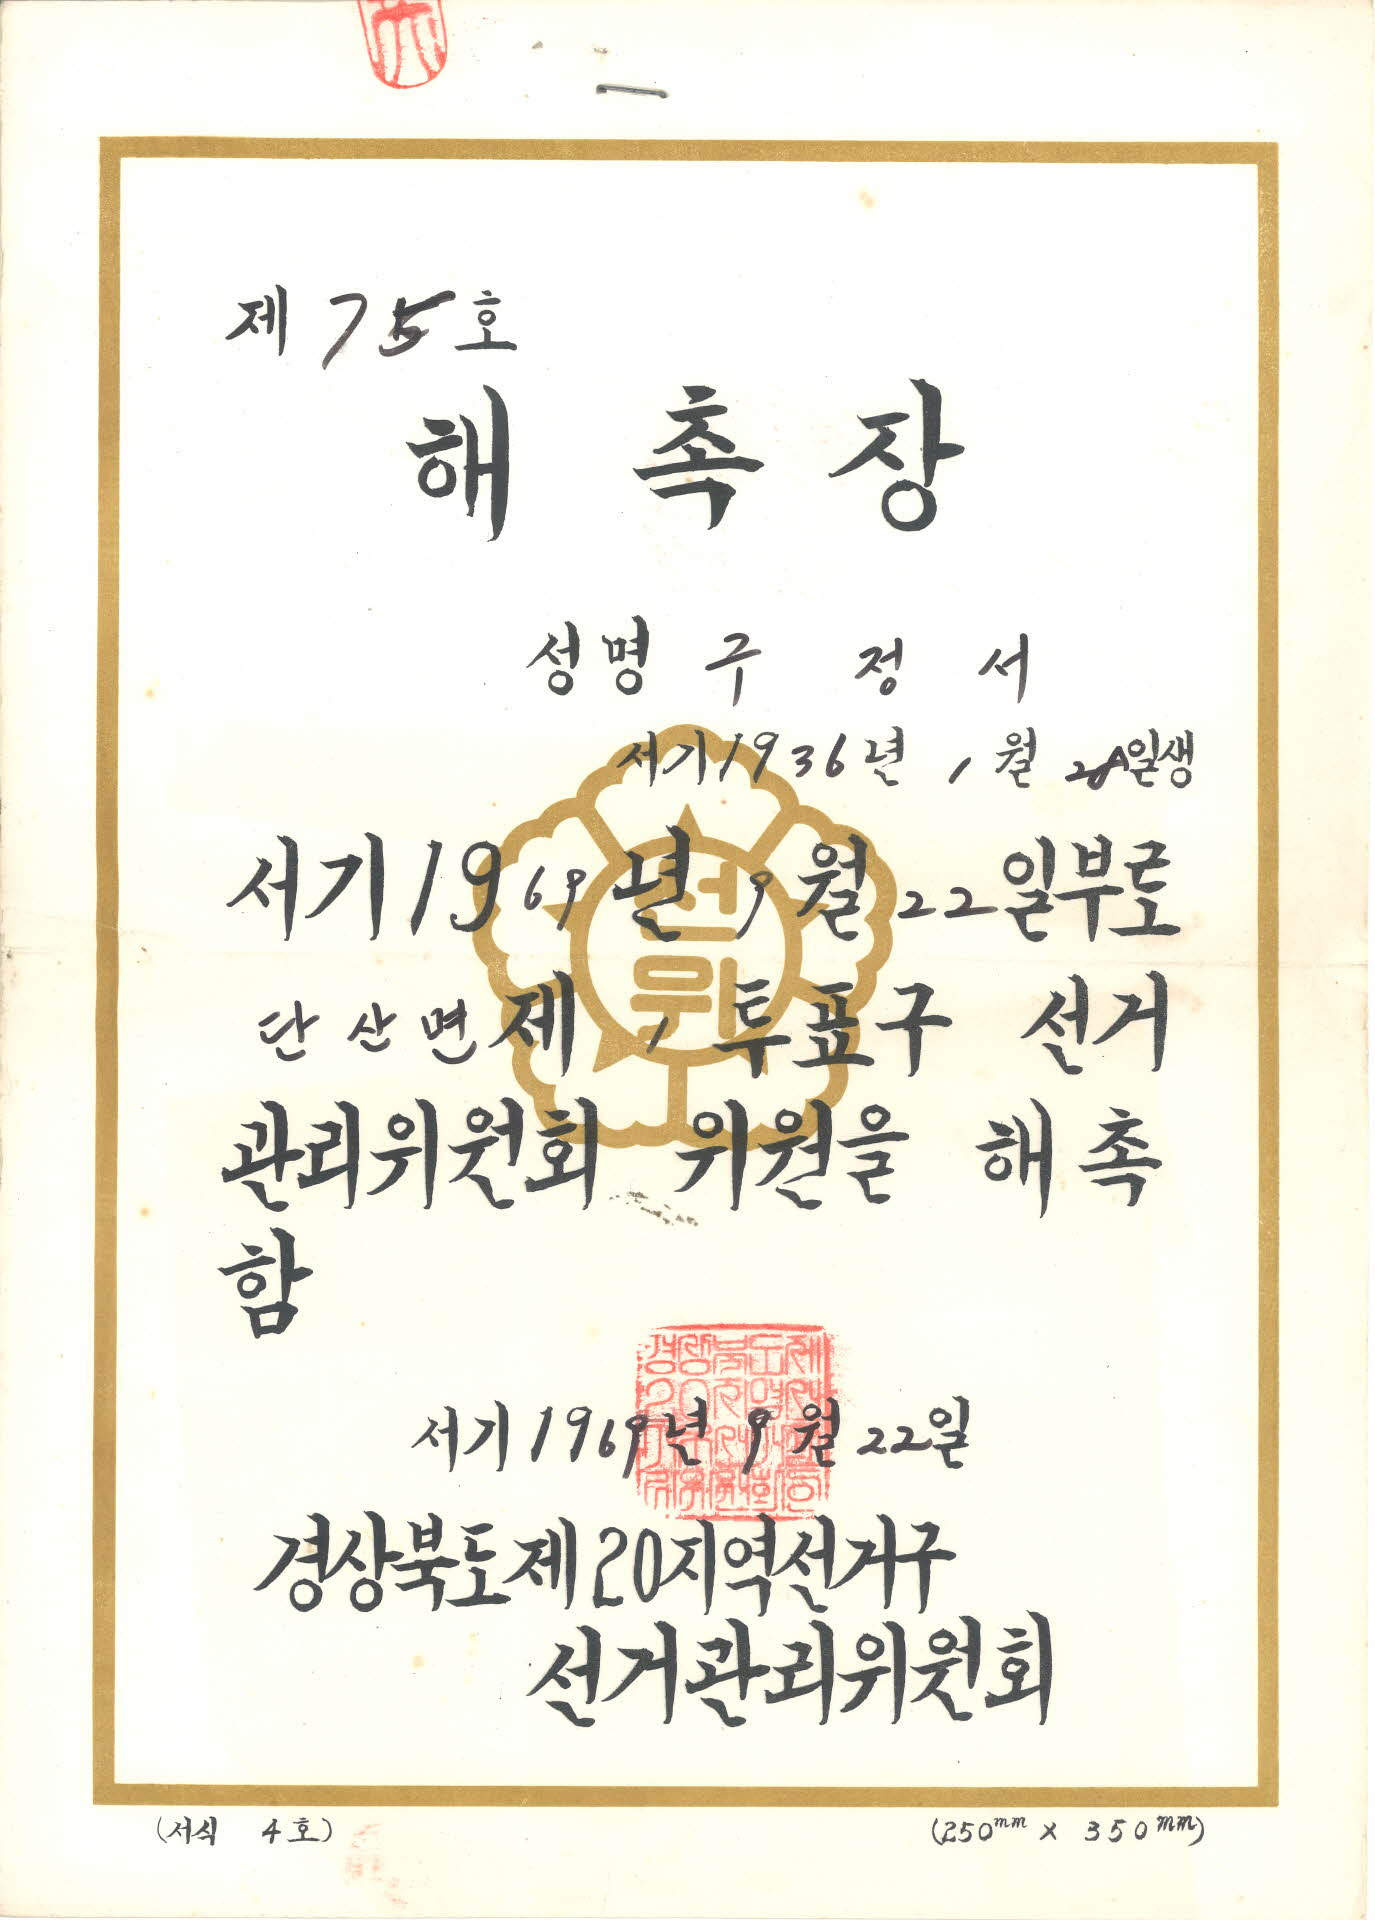 제 75 호
해 촉 장
성명 구 정 서
서기 1936년 1월 일생
서기 1969년 9월 22일부로
단산면 제 1 투표구 선거
관리위원회 위원을 해촉
함
선위
서기 1969년 9월 22일
경상북도제20지역선거구
선거관리위원회
(서식 4호)
(250mm x 350mm)